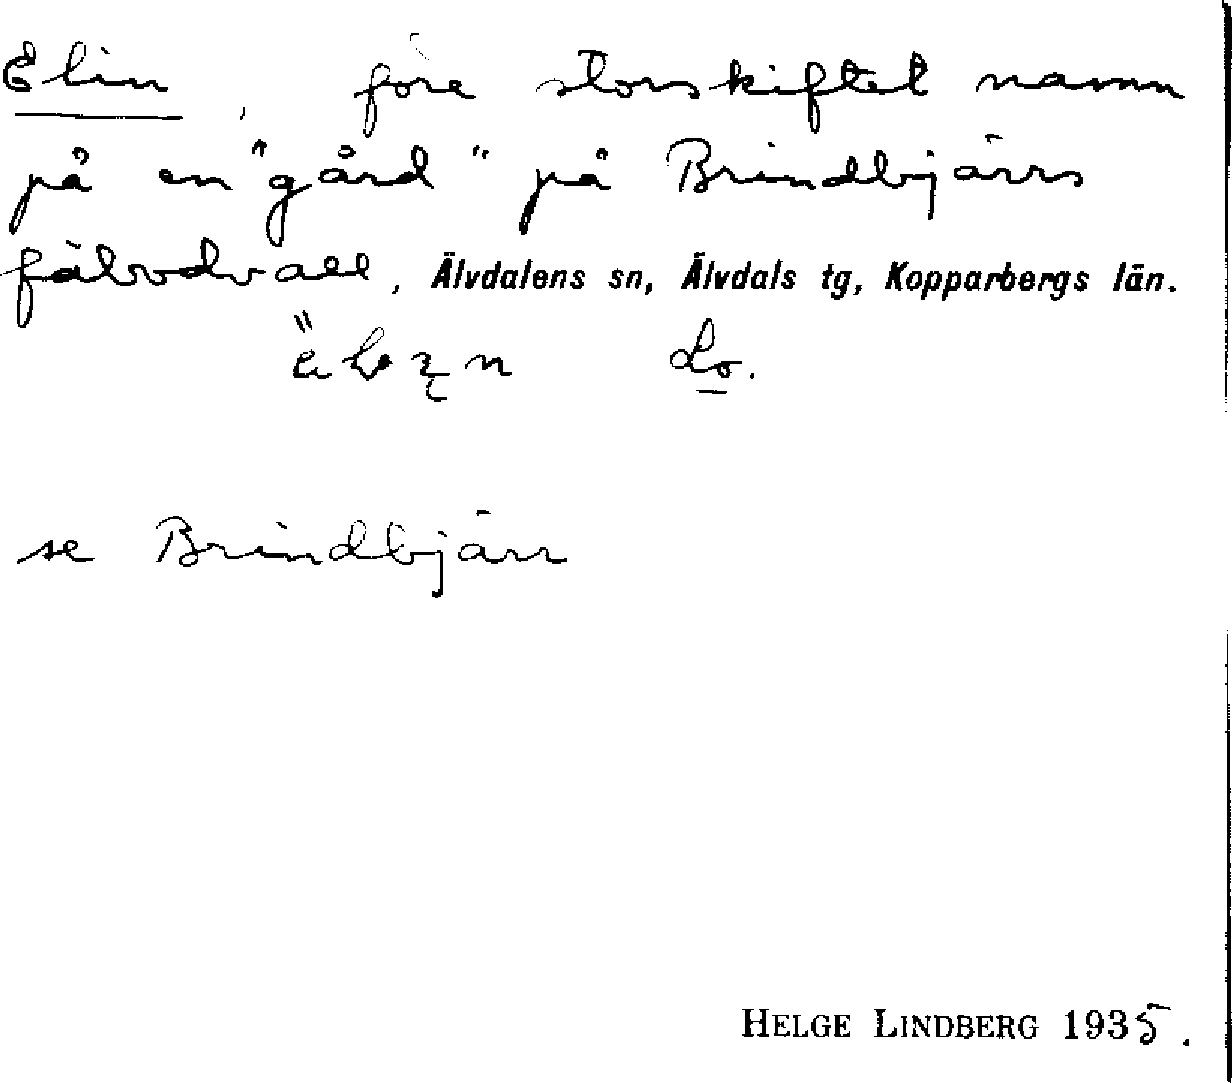 Elin, före storskiftet namn
på en "gård" på Brindbjärrs
fäbodvall, Älvdalens sn, Älvdals tg, Kopparbergs län.
Lo.
se Brindbjärr
HELGE LINDBERG 1935.